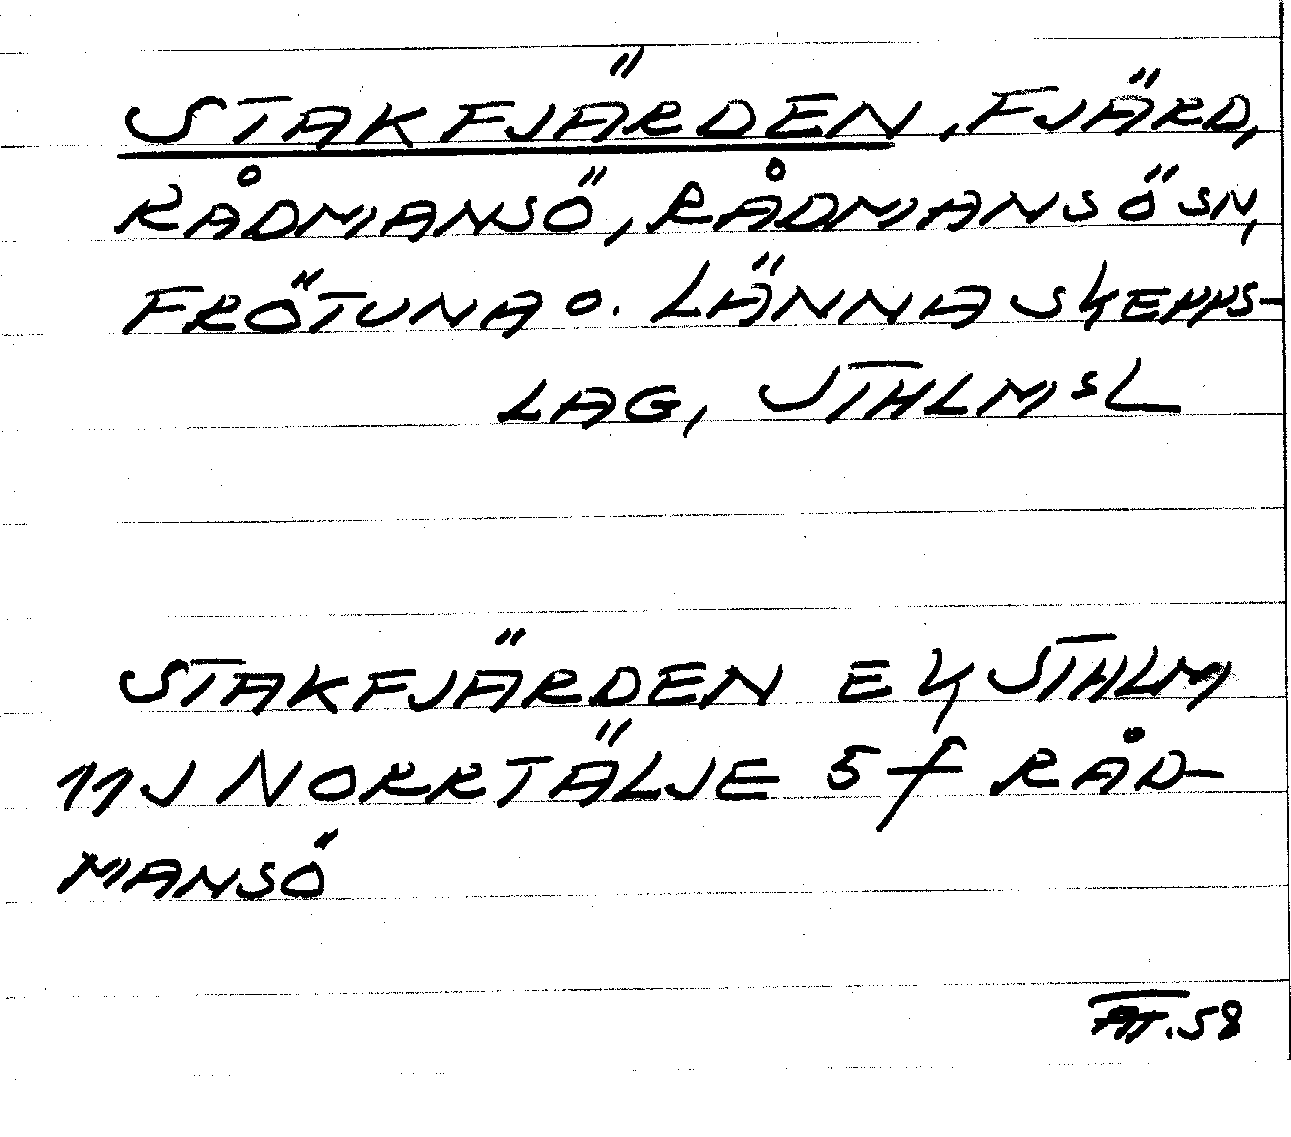 STAKFJÄRDEN, FJÄRD,
RÅDMANSÖ, RÅDMANSÖ SN,
FRÖTUNA O. LÄNNA SKEPPS-
LAG, STHLMSL
STAKFJÄRDEN EK STHLM
11J NORRTÄLJE 5 f RÅD-
MANSÖ
.58